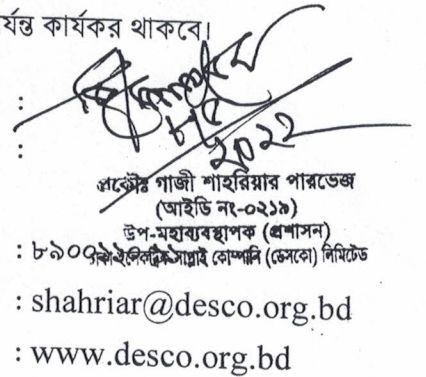 র্যন্ত কার্যকর থাকবে।
:
:
২০২২
প্রকৌঃ গাজী শাহরিয়ার পারভেজ
(আইডি নং-০২১৯)
উপ-মহাব্যবস্থাপক (প্রশাসন)
: ৮৯০০ সাপ্লাই কোম্পানি (ডেসকো) লিমিটেড
: shahriar@desco.org.bd
: www.desco.org.bd